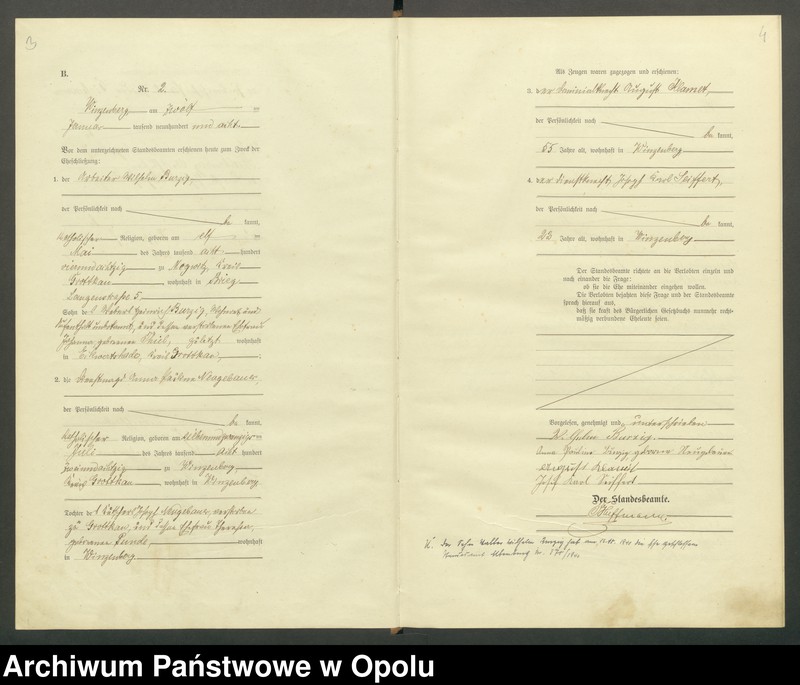 3
B.
Nr. 2.
Winzenberg am zwölf
Januar tausend neunhundert und acht.
Vor dem unterzeichneten Standesbeamten erschienen heute zum Zweck der
Eheschließung:
1. der Arbeiter Wilhelm Burzig,
der Persönlichkeit nach
be kannt,
katholischer Religion, geboren am elf
Mai des Jahres tausend acht hundert
einundachtzig zu Kreis
Grottkau, wohnhaft in Brieg,
Langestraße 5
Sohn des
Aufenthalt unbekannt, und dessen verstorbenen Ehefrau
Johanna geborenen zuletzt wohnhaft
in Kreis Grottkau.
2. die Dienstmagd Anna Neugebauer,
der Persönlichkeit nach
be kannt,
katholischer Religion, geboren am siebenundzwanzig
Juli des Jahres tausend acht hundert
zweiundachtzig zu Winzenberg
Kreis Grottkau, wohnhaft in Winzenberg
Tochter des Joseph Neugebauer, verstorben
zu Grottkau, und dessen Ehefrau Theresia,
geborenen wohnhaft
in Winzenberg
4
Als Zeugen waren zugezogen und erschienen:
3. der August Klamet,
der Persönlichkeit nach
be kannt,
55 Jahre alt, wohnhaft in Winzenberg
4. der Dienstknecht Joseph Karl Seiffert,
der Persönlichkeit nach
be kannt,
23 Jahre alt, wohnhaft in Winzenberg
Der Standesbeamte richtete an die Verlobten einzeln und
nach einander die Frage:
ob sie die Ehe miteinander eingehen wollen.
Die Verlobten bejahten diese Frage und der Standesbeamte
sprach hierauf aus,
daß sie kraft des Bürgerlichen Gesetzbuchs nunmehr recht-
mäßig verbundene Eheleute seien.
Vorgelesen, genehmigt und unterschrieben
Wilhelm Burzig.
Anna Burzig geborene Neugebauer
August Klamet
Josef Karl Seiffert
Der Standesbeamte.
Hoffmann.
Der Sohn Walter Wilhelm Burzig hat am die Ehe geschlossen
Standesamt
Archiwum Państwowe w Opolu